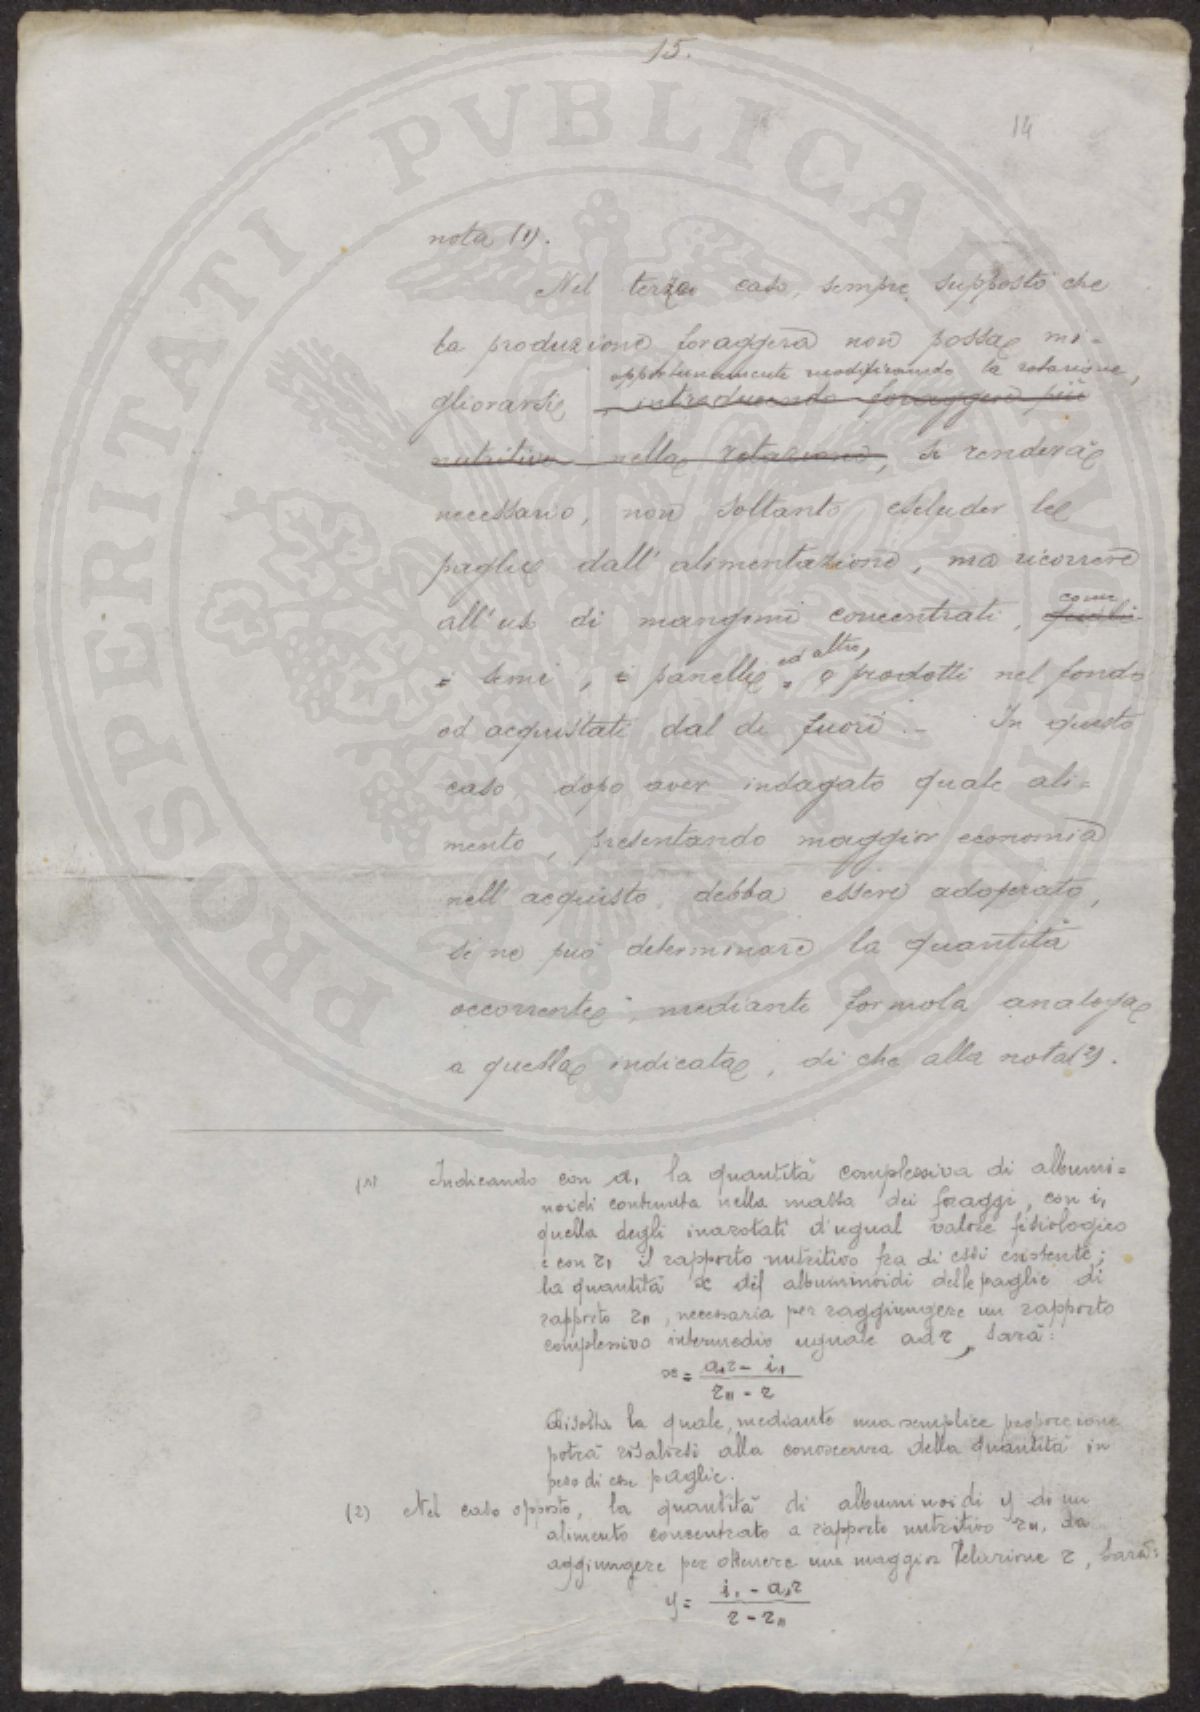 15.
14
PROSPERITATI PVBLICAE AVGENDAE
nota (1).
Nel terzo caso, sempre supposto che
la produzione foraggera non possa mi=
opportunamente modificando la rotazione,
gliorarsi, introducendo foraggere più
nutritive nella rotazione, si renderà
necessario, non soltanto escluder le
paglie dall'alimentazione, ma ricorrere
come
all'uso di mangimi concentrati, quali
ed altro,
i semi, i panelli, o prodotti nel fondo
od acquistati dal di fuori.- In questo
caso dopo aver indagato quale ali=
mento, presentando maggior economia
nell'acquisto, debba essere adoperato,
si ne può determinare la quantità
occorrente, mediante formola analoga
a quella indicata, di che alla nota (2).
(1) Indicando con a, la quantità complessiva di albumi=
noidi contenuta nella massa dei foraggi, con i,
quella degli inazotati d'ugual valore fisiologico
e con r, il rapporto nutritivo fra di essi esistente;
la quantità x di albuminoidi delle paglie di
rapporto r,, , necessaria per raggiungere un rapporto
complessivo intermedio uguale ad r, sarà:
x = (a,r - i,) / (r,, - r)
Risolta la quale, mediante una semplice proporzione
potrà risalirsi alla conoscenza della quantità in
peso di esse paglie.
(2) Nel caso opposto, la quantità di albuminoidi y di un
alimento concentrato a rapporto nutritivo r,, da
aggiungere per ottenere una maggior relazione r, sarà:
y = (i, - a,r) / (r - r,,)